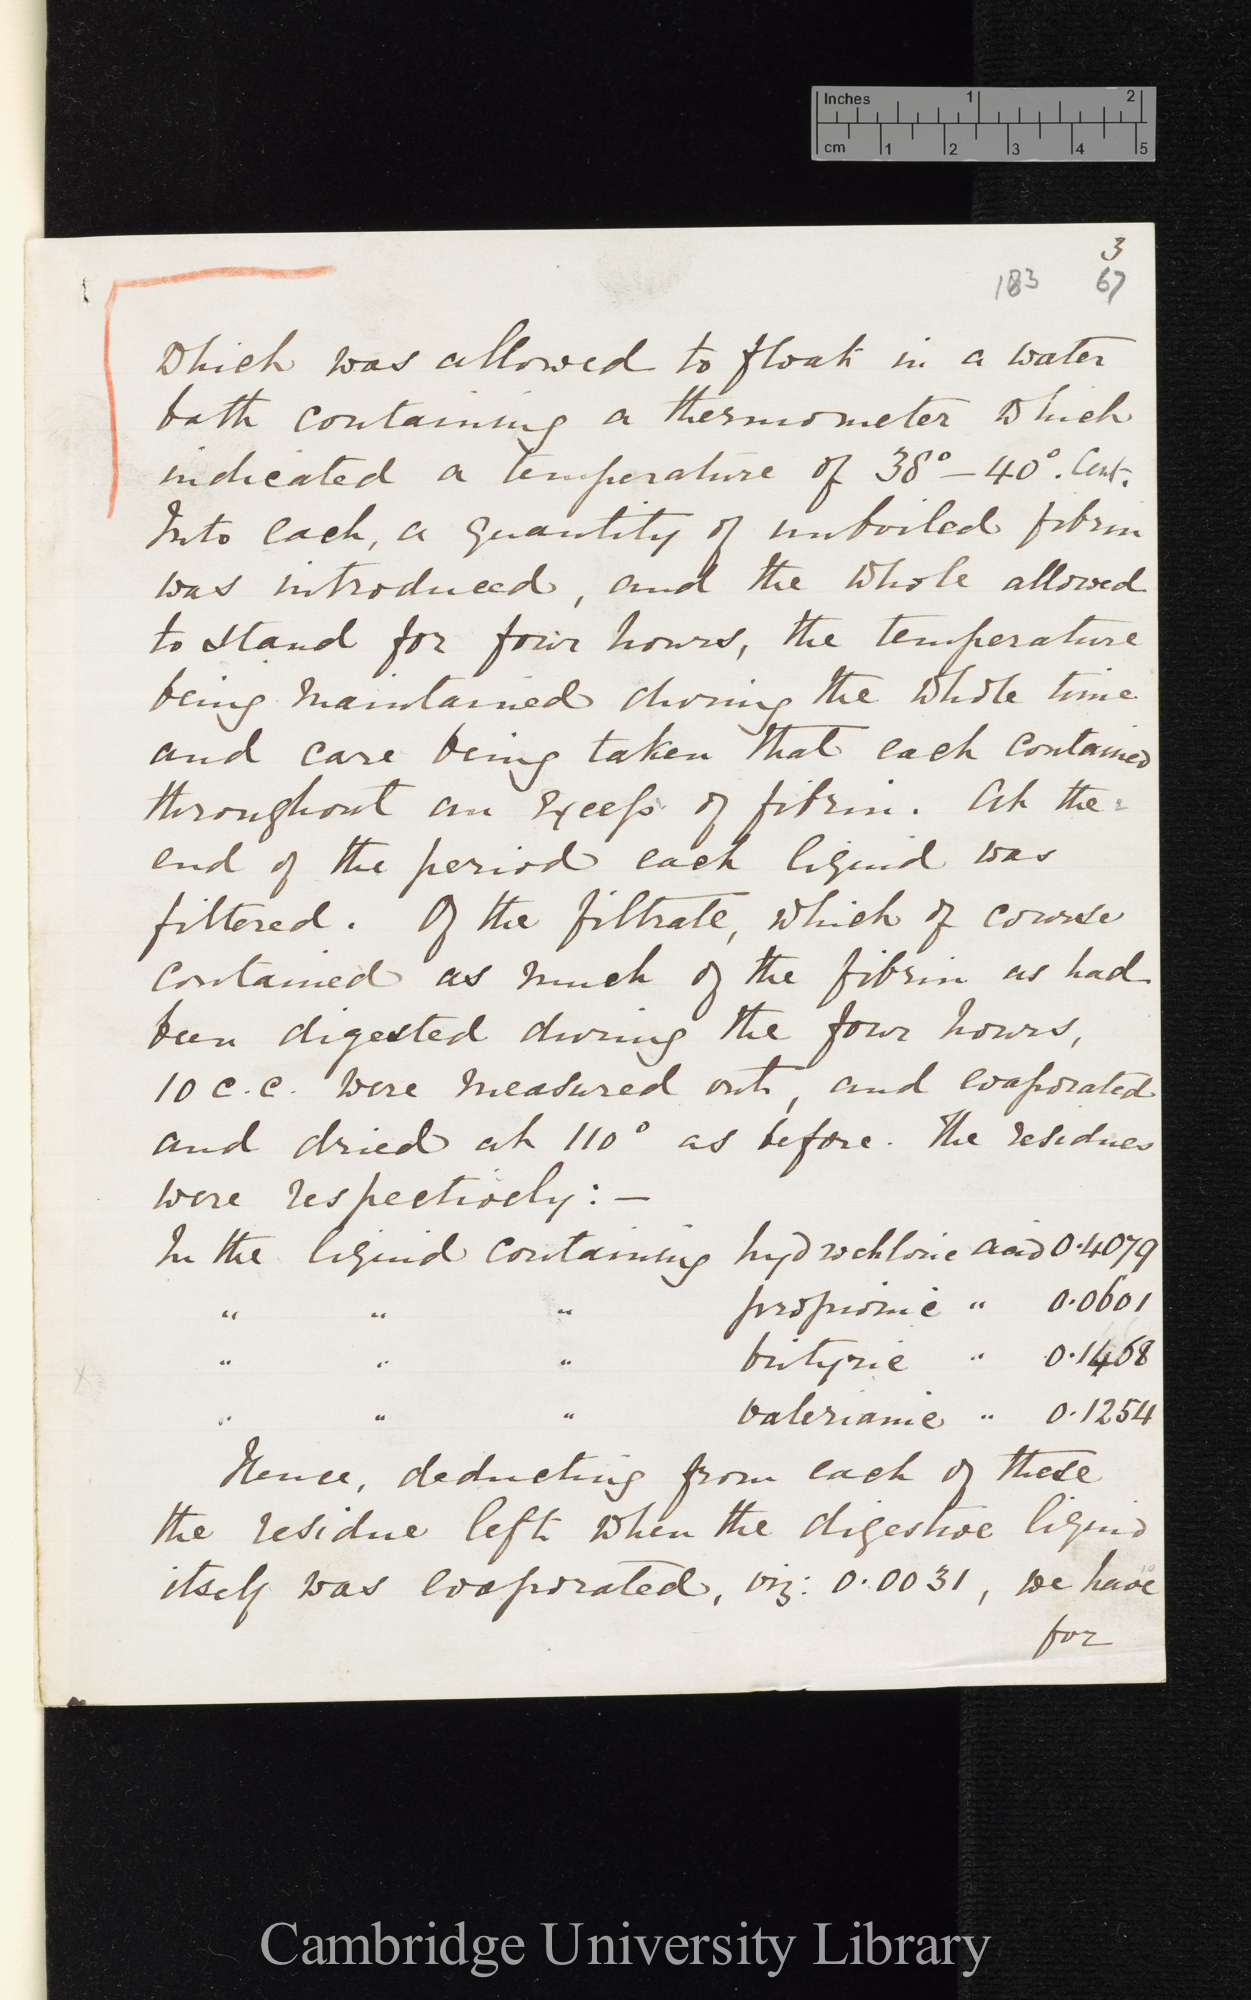 Inches 1 2
cm 1 2 3 4 5
3
183 67
which was allowed to float in a water
bath containing a thermometer which
indicated a temperature of 38°–40°. Cent.
Into each, a quantity of unboiled fibrin
was introduced, and the whole allowed
to stand for four hours, the temperature
being maintained during the whole time
and care being taken that each contained
throughout an excess of fibrin. At the
end of the period each liquid was
filtered. Of the filtrate, which of course
contained as much of the fibrin as had
been digested during the four hours,
10 c.c. were measured out, and evaporated
and dried at 110° as before. The residues
were respectively: —
In the liquid containing hydrochloric acid 0.4079
" " " propionic " 0.0601
" " " butyric " 0.1468
" " " valerianic " 0.1254
Hence, deducting from each of these
the residue left when the digestive liquid
itself was evaporated, viz: 0.0031, we have
for
Cambridge University Library